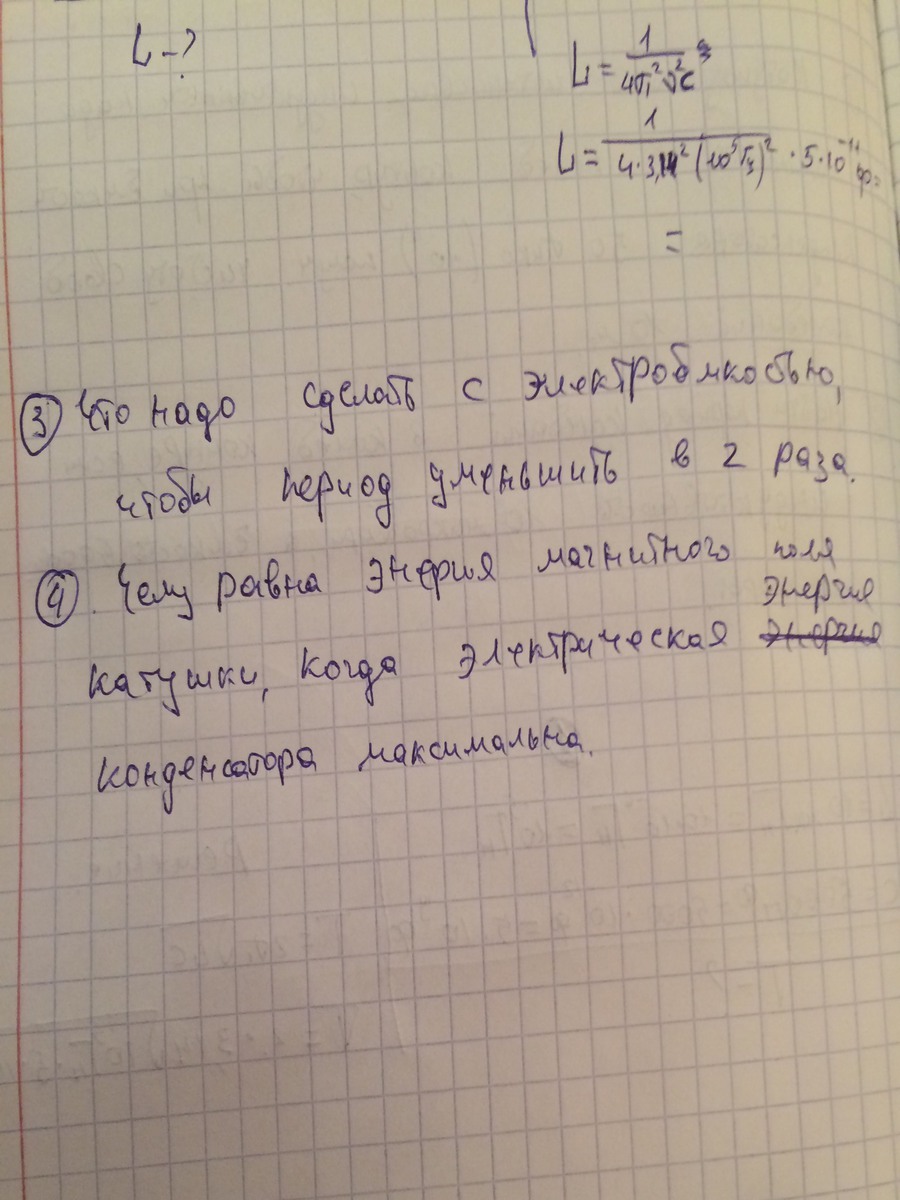 L - ?
L = 1 / 4π²ν²C
L = 1 / 4·3,14² (10⁵Гц)² · 5·10⁻¹¹ Ф
=
③ Что надо сделать с электроёмкостью,
чтобы период уменьшить в 2 раза.
④. Чему равна энергия магнитного поля
энергия
катушки, когда электрическая энергия
конденсатора максимальна.